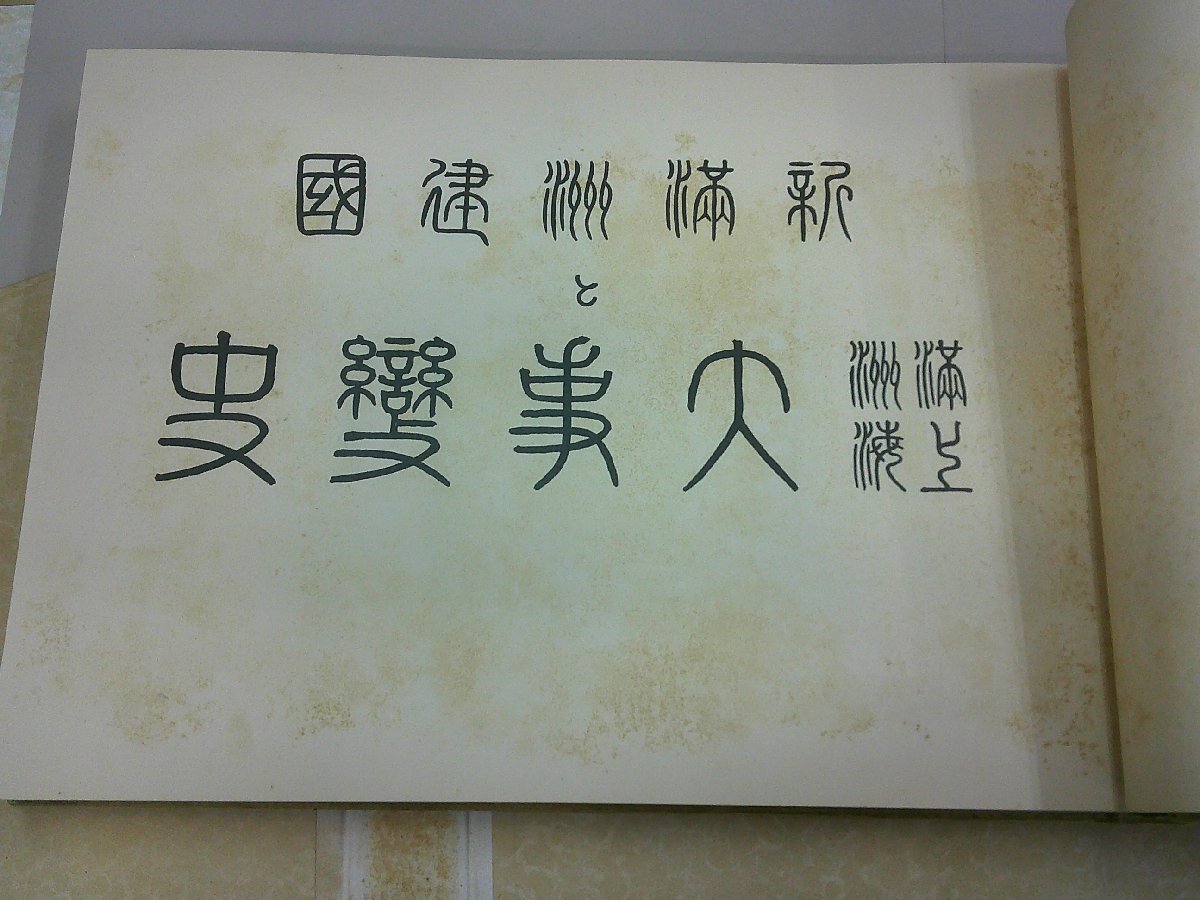 新滿洲建國
と
滿洲上海大事變史